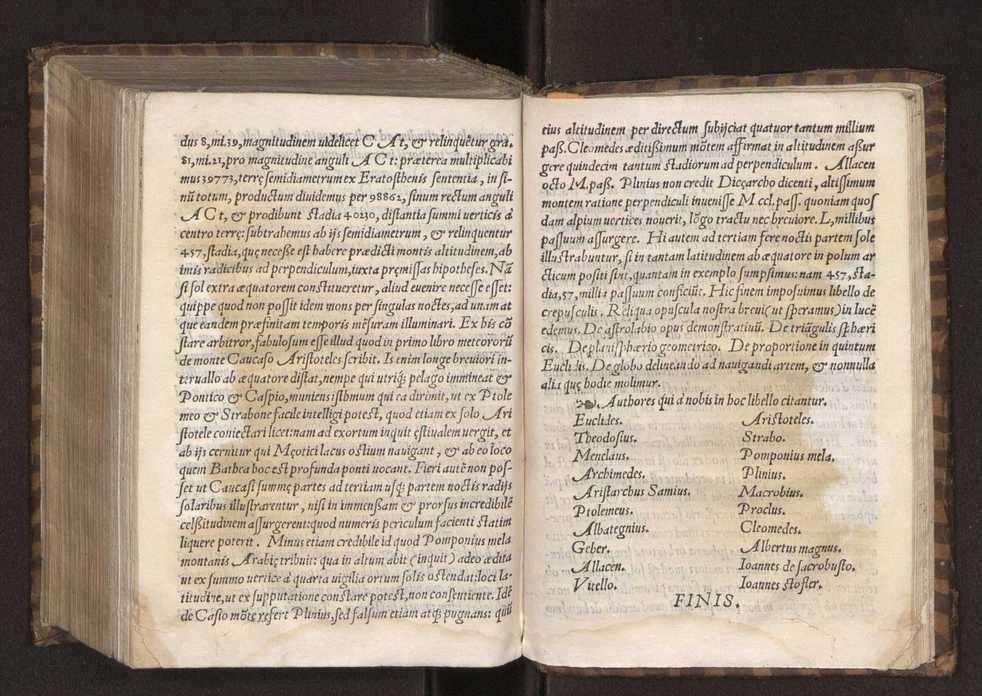 dus 8,mi.39,magnitudinem uidelicet C A t, & relinquetur gra.
81,mi.21,pro magnitudine anguli A C t: præterea multiplicabi
mus 39773,terrę semidiametrum ex Eratosthenis sententia, in si-
nũ totum, productum diuidemus per 98862, sinum rectum anguli
A C t, & prodibunt stadia 40230, distantia summi verticis à
centro terrę: subtrahemus ab ijs semidiametrum, & relinquentur
457,stadia,quę necesse est habere prædicti montis altitudinem,ab
imis radicibus ad perpendiculum,iuxta pręmissas hipotheses. Nã
si sol extra æquatorem constitueretur, aliud euenire necesse esset:
quippe quod non possit idem mons per singulas noctes, ad unam at
que eandem præfinitam temporis mẽsuram illuminari. Ex his cõ
stare arbitror,fabulosum esse illud quod in primo libro meteororũ
de monte Caucaso Aristoteles scribit. Is enim longe breuiori in-
teruallo ab æquatore distat,nempe qui utriq; pelago immineat &
Pontico & Caspio, muniens isthmum qui ea dirimit, ut ex Ptole
meo & Strabone facile intelligi potest, quod etiam ex solo Ari
stotele coniectari licet: nam ad exortum inquit ęstiualem uergit, et
ab ijs cernitur qui Męotici lacus ostium nauigant, & ab eo loco
quem Bathea hoc est profunda ponti uocant. Fieri autẽ non pos-
set ut Caucasi summę partes ad tertiam usq; partem noctis radijs
solaribus illustrarentur, nisi in immensam & prorsus incredibilẽ
celsitudinem assurgerent:quod numeris periculum facienti statim
liquere poterit. Minus etiam credibile id quod Pomponius mela
montanis Arabię tribuit: qua in altum abit (inquit) adeo ædita
ut ex summo uertice à quarta uigilia ortum solis ostendat:loci la-
titudine,ut ex supputatione constare potest,non consentiente. Idẽ
de Casio mõte refert Plinius,sed falsum etiam atq; pugnans: quũ
eius altitudinem per directum subijciat quatuor tantum millium
pass. Cleomedes æditissimum mõtem affirmat in altitudinem assur
gere quindecim tantum stadiorum ad perpendiculum. Allacen
octo M.pass. Plinius non credit Dicęarcho dicenti, altissimum
montem ratione perpendiculi inuenisse M ccl.pass. quoniam quos
dam alpium vertices nouerit, lõgo tractu nec breuiore. L, millibus
passuum assurgere. Hi autem ad tertiam fere noctis partem sole
illustrabuntur, si in tantam latitudinem ab æquatore in polum ar
cticum positi sint,quantam in exemplo sumpsimus: nam 457, sta-
dia,57, millia passuum conficiũt. Hic finem imposuimus libello de
crepusculis. Reliqua opuscula nostra breui(ut speramus)in lucẽ
edemus. De astrolabio opus demonstratiuũ. De triãgulis sphæri
cis. De planisphærio geometrico. De proportione in quintum
Euclidis. De globo delineando ad nauigandi artem, & nonnulla
alia quę hodie molimur.
Authores qui à nobis in hoc libello citantur.
Euclides. Aristoteles.
Theodosius. Strabo.
Menelaus. Pomponius mela.
Archimedes. Plinius.
Aristarchus Samius. Macrobius.
Ptolemeus. Proclus.
Albategnius. Cleomedes.
Geber. Albertus magnus.
Allacen. Ioannes de sacrobusto.
Vitello. Ioannes stofler.
FINIS.